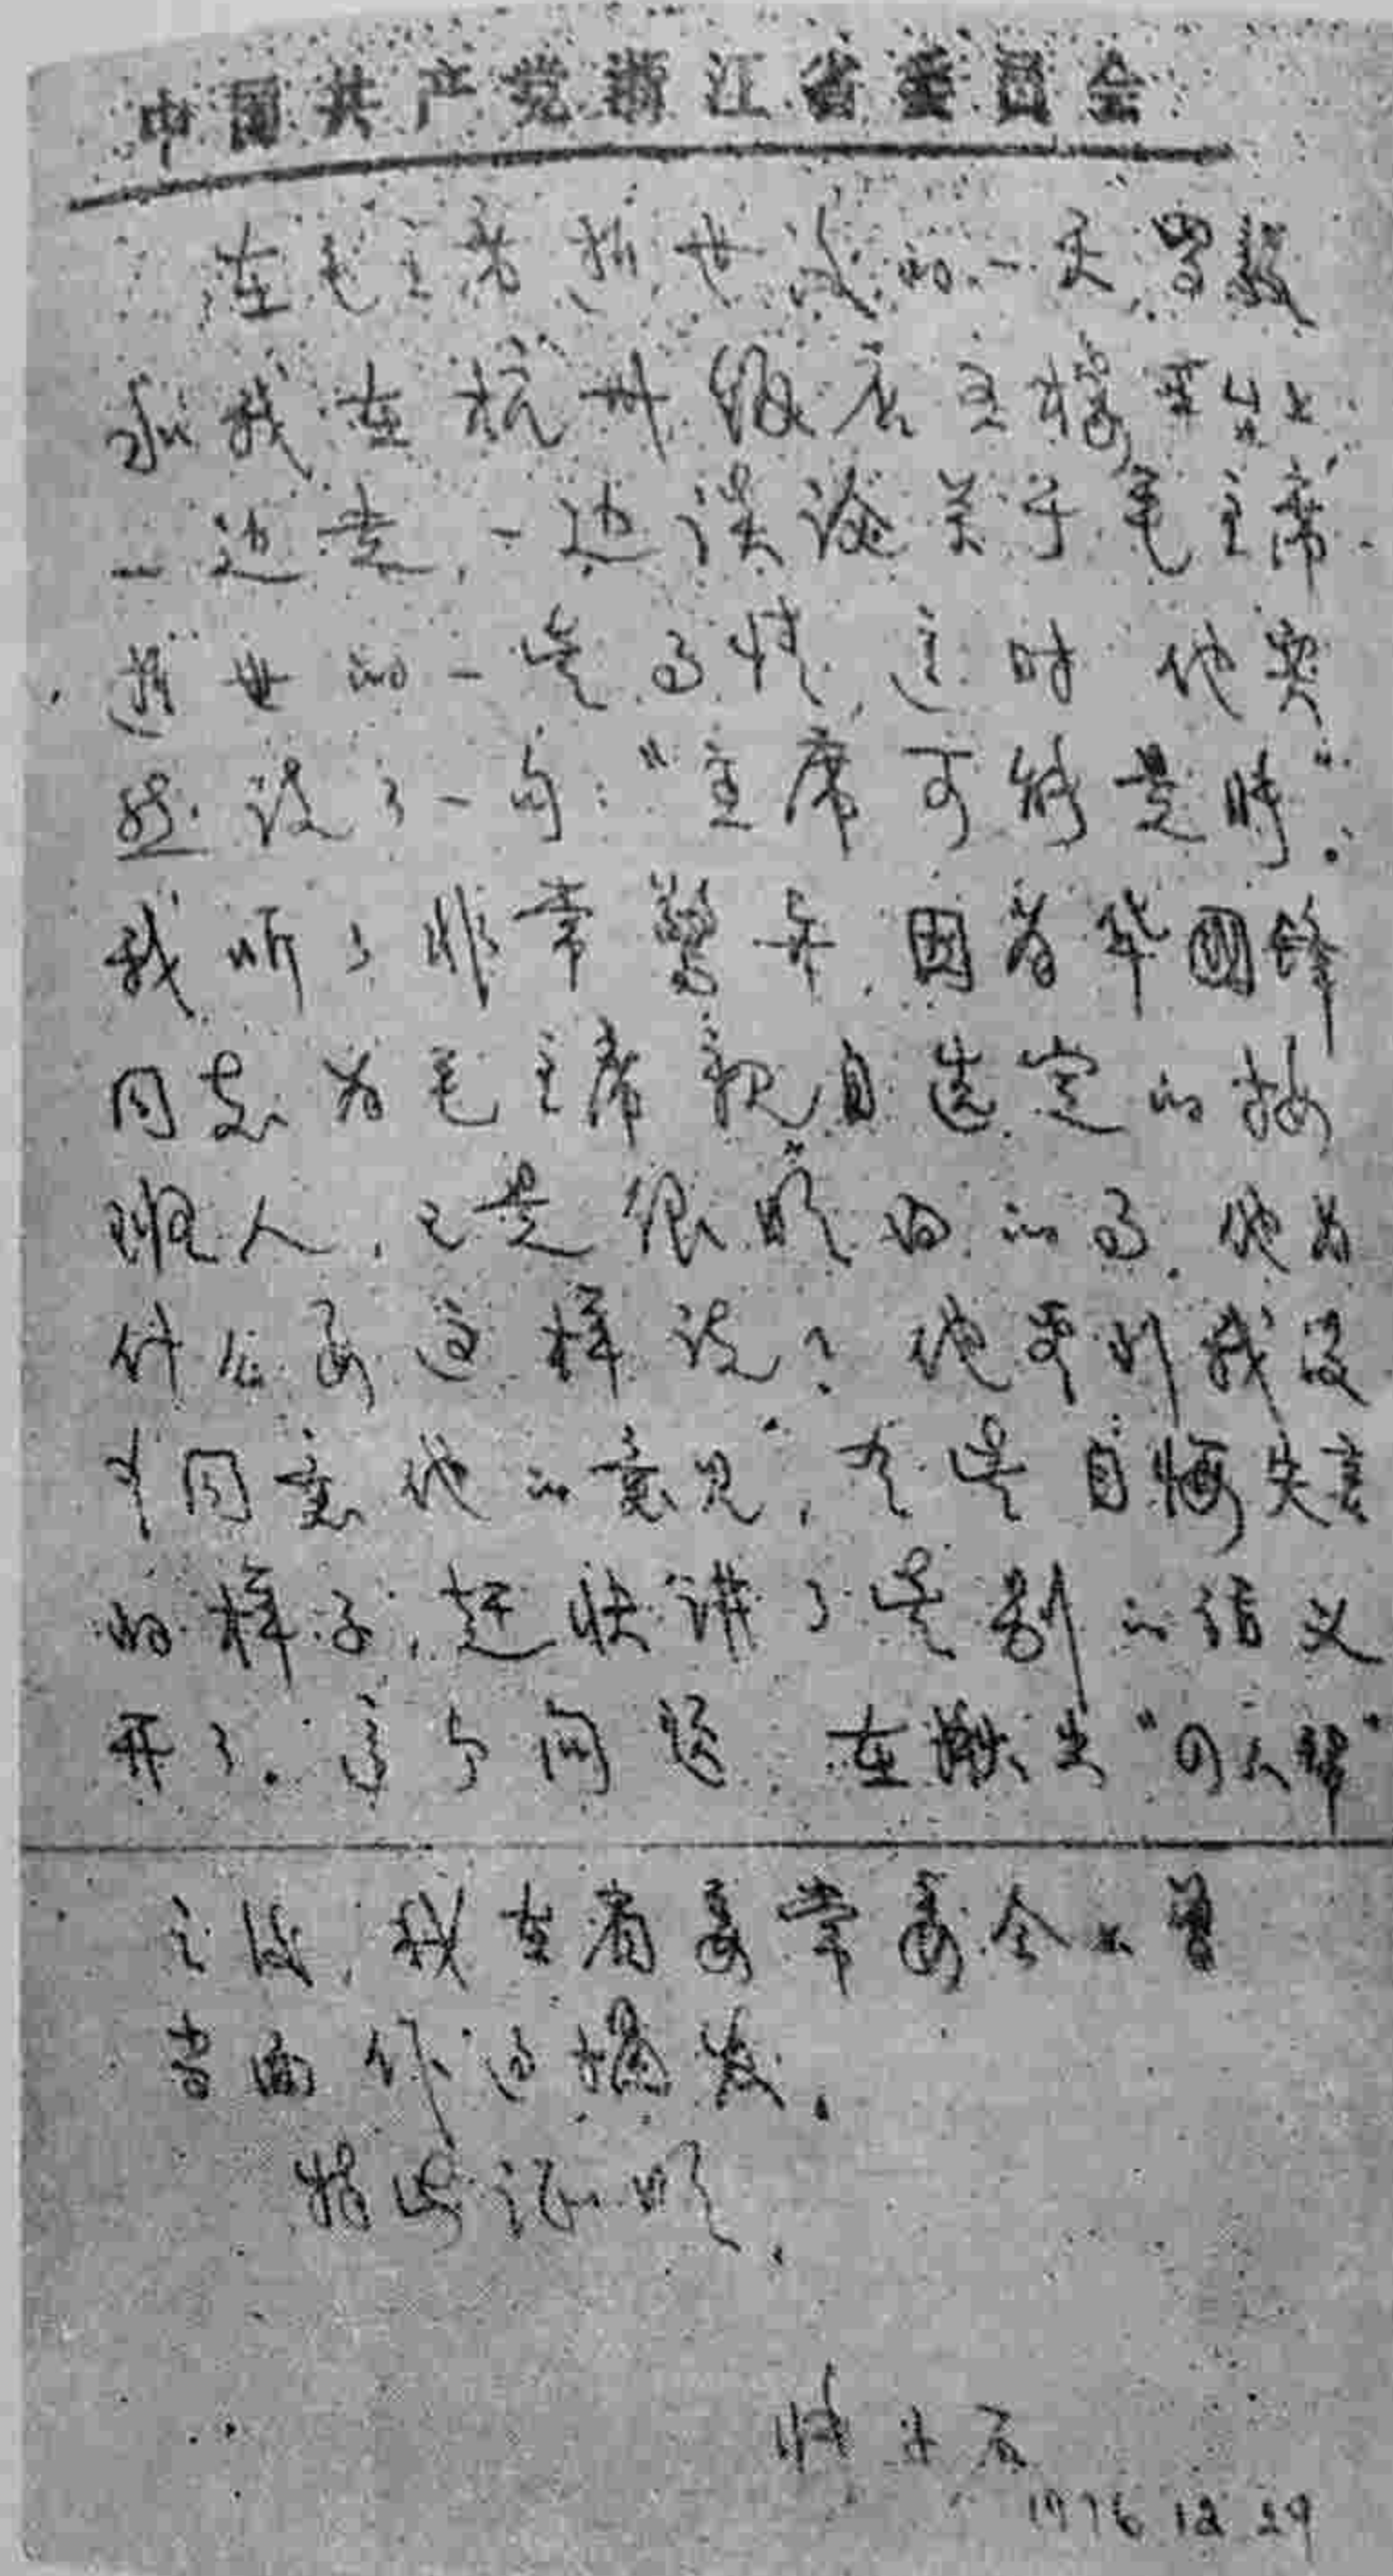 中国共产党浙江省委员会
在毛主席逝世后的一天,罗毅
和我在杭州饭店主楼平台上
一边走,一边谈论关于毛主席
逝世的一些事情,这时他突
然说了一句:“主席可能是
我听了非常惊异,因为华国锋
同志为毛主席亲自选定的接
班人,已是很明白的事,他为
什么要这样说?他看到我没
有同意他的意见,大是自悔失言
的样子,赶快讲了些别的话叉
开了。这个问题,在揪出“四人帮”
之后,我在省委常委会上曾
当面作过揭发。
特此证明。
1976.12.29